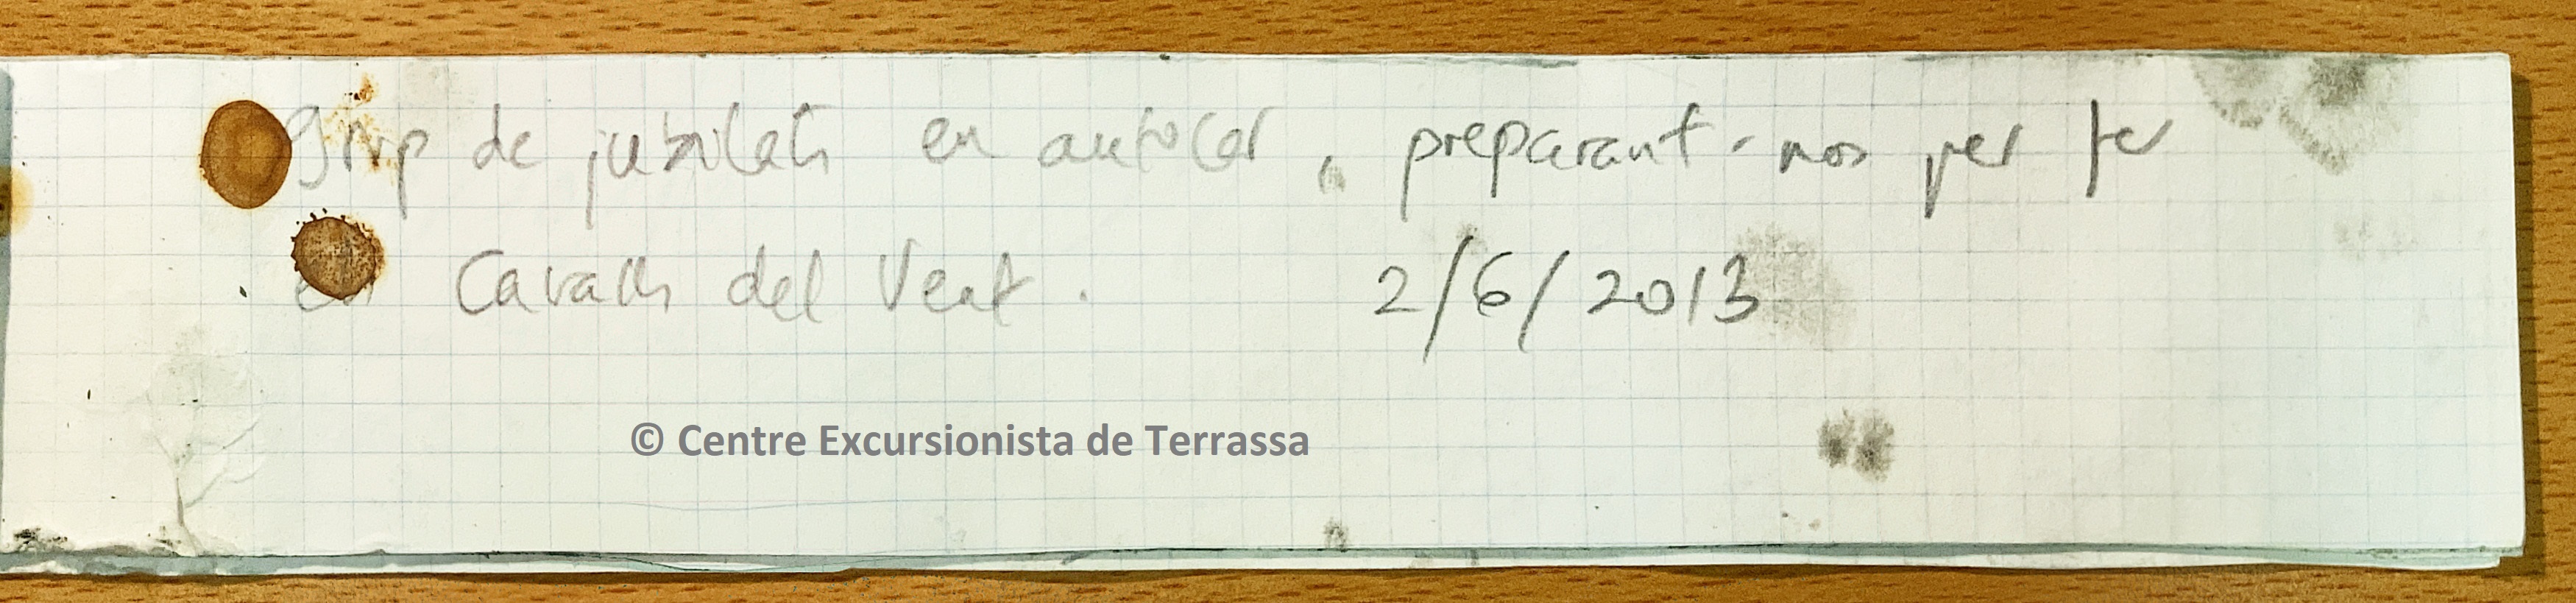 Grup de jubilats en autocar, preparant-nos per fer
Cavalls del Vent. 2/6/2013
© Centre Excursionista de Terrassa